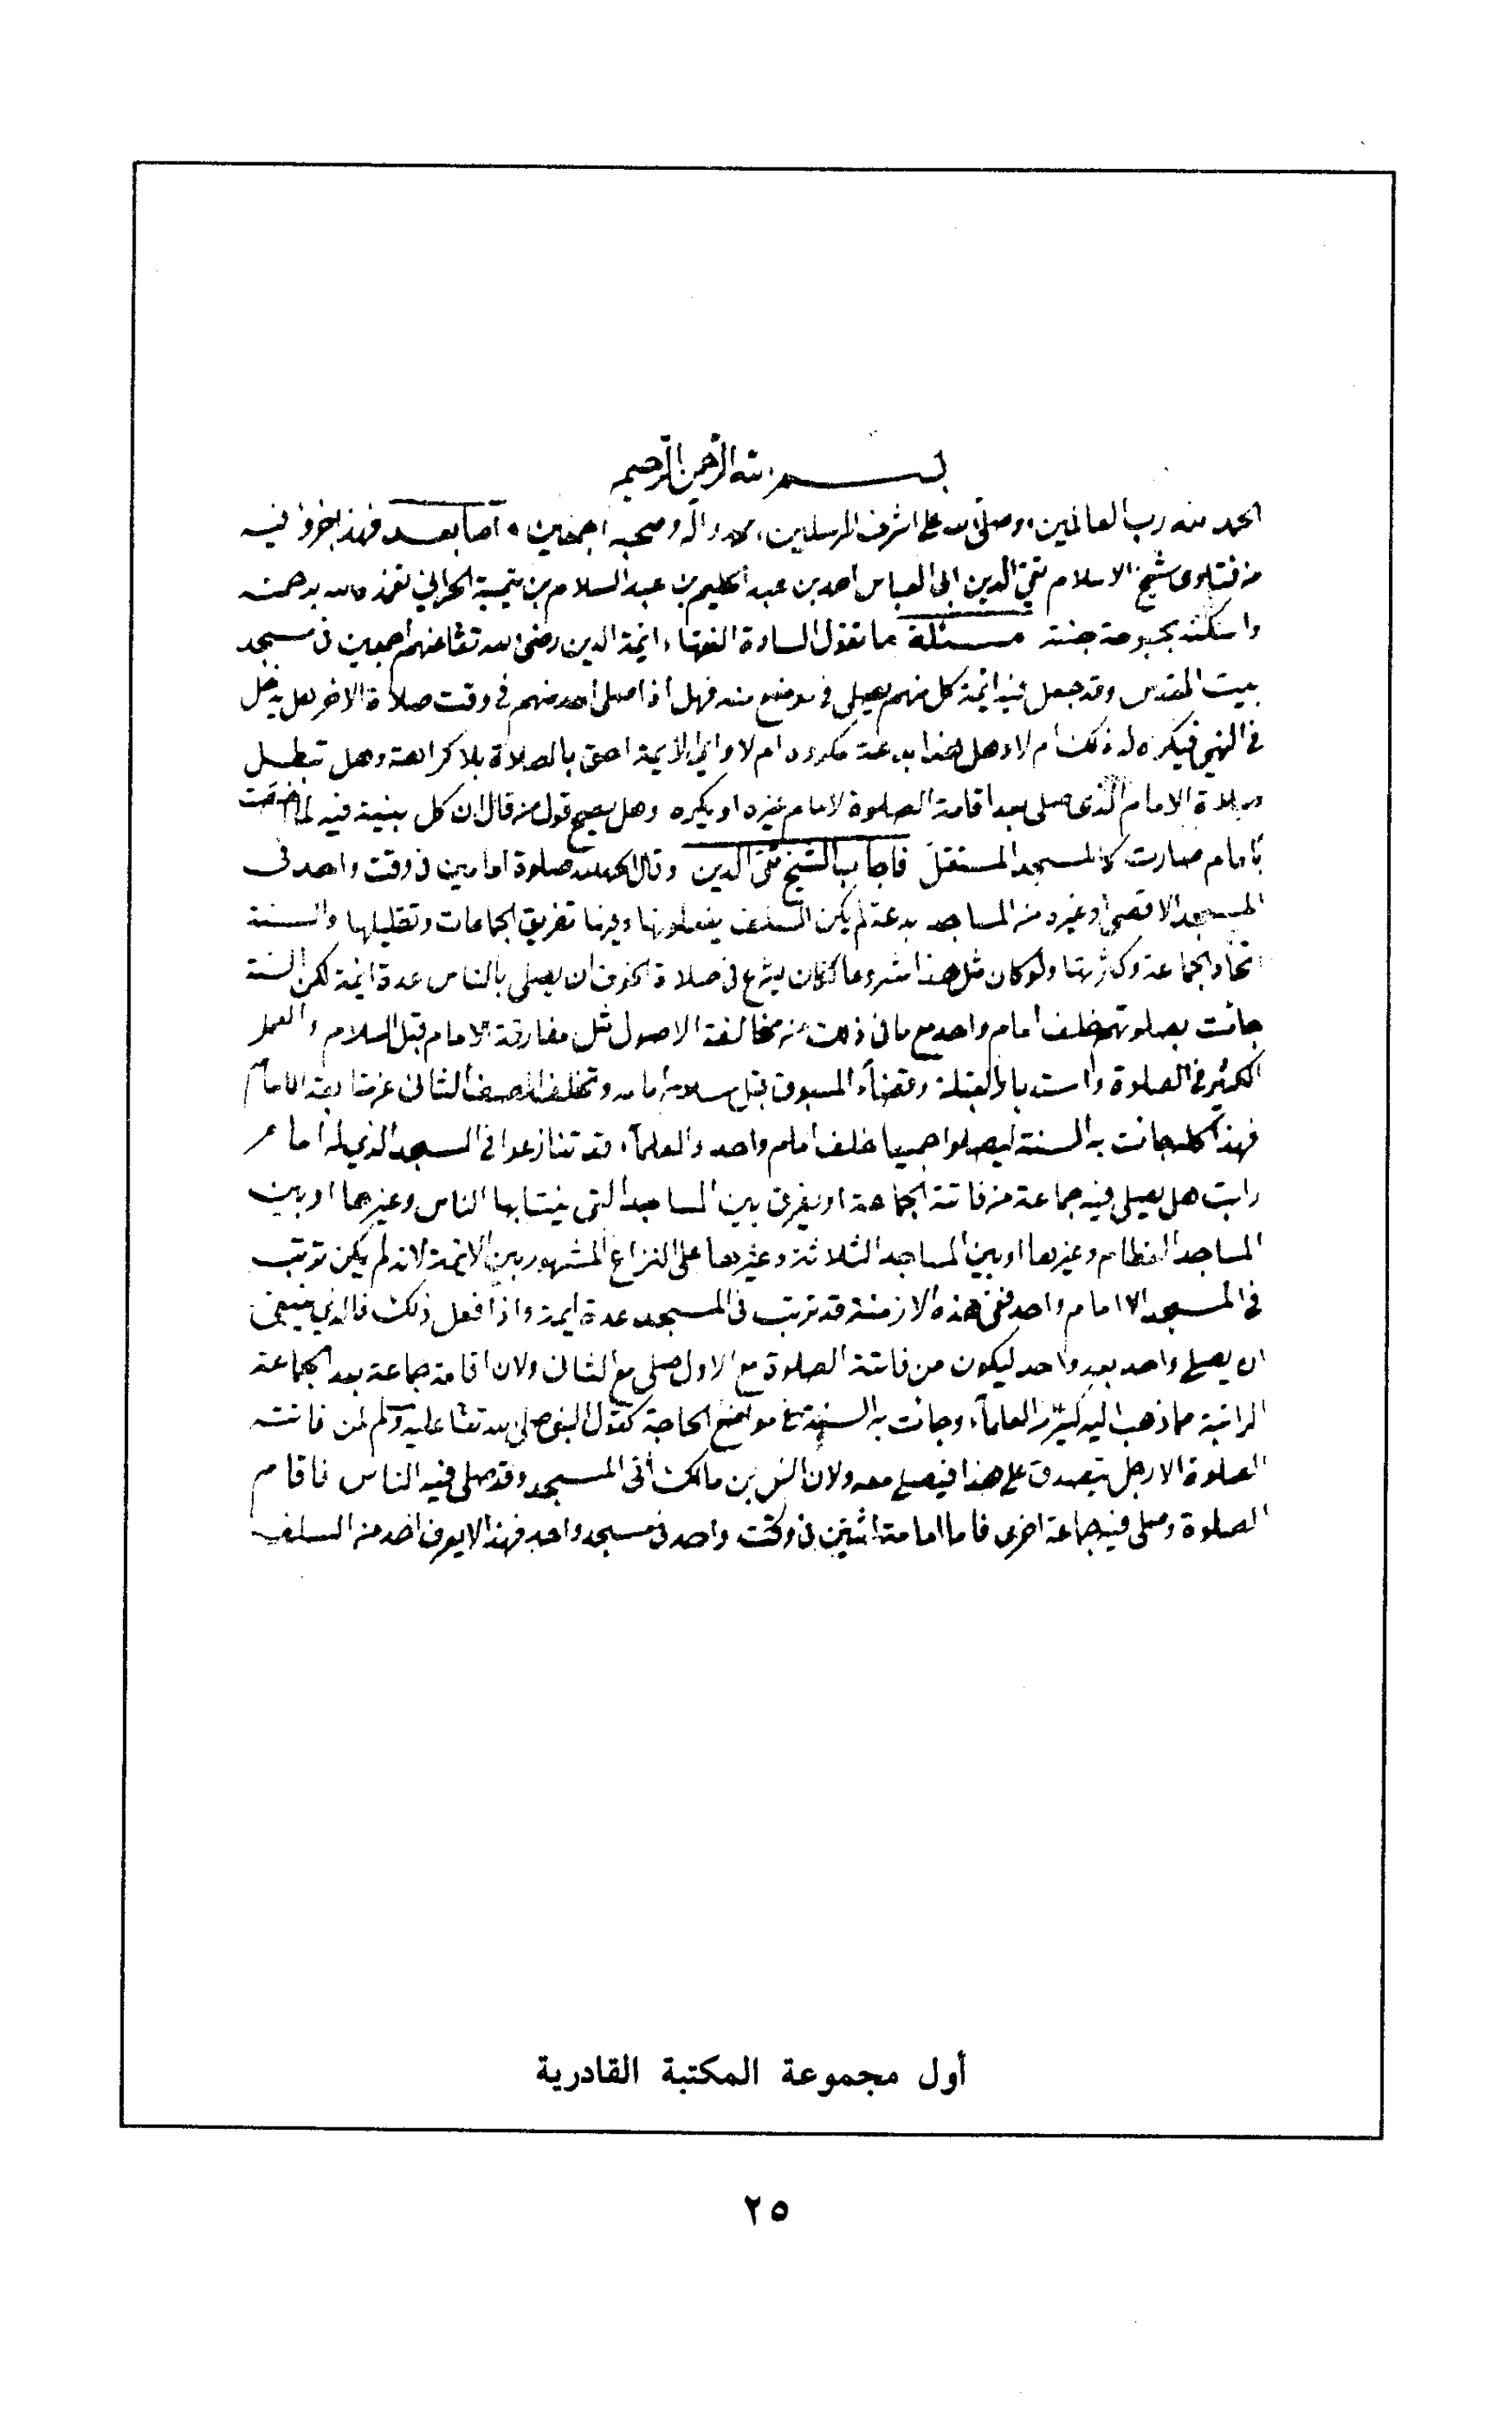 بسم الله الرحمن الرحيم
الحمد لله رب العالمين، وصلى الله على اشرف المرسلين، محمد وآله وصحبه اجمعين، اما بعد فهذا جزؤ فيه
من فتاوى شيخ الاسلام تقي الدين ابى العباس احمد بن عبد الحليم بن عبد السلام بن تيمية الحراني تغمده الله برحمته
واسكنه بحبوحة جنته مسئلة ما تقول السادة الفقهاء ائمة الدين رضى الله تعا عنهم اجمعين فى مسجد
بيت المقدس وقد جعل فيه ائمة كل منهم يصلى فى موضع منه فهل اذا صلى احد منهم فى وقت صلاة الاخر هل يدخل
فى النهي فيكره له ذلك ام لا وهل هذا بدعة مكروه ام لا واي الايمة احق بالصلاة بلا كراهة وهل تبطل
صلاة الامام الذى صلى بعد اقامة الصلوة لامام غيره او يكره وهل يصح قول من قال ان كل بنية فيه لما اختصت
بامام صارت كالمسجد المستقل فاجاب الشيخ تقي الدين وقال الحمد لله صلوة امامين فى وقت واحد فى
المسجد الاقصى أو غيره من المساجد بدعة لم يكن السلف يفعلونها وفيها تفريق الجماعات وتقليلها والسنة
اتحاد الجماعة وكثرتها ولو كان مثل هذا مشروعا لكان يشرع فى صلاة الخوف ان يصلى بالناس عدة ائمة لكن السنة
جائت بصلوتهم خلف امام واحد مع ما فى ذلك من مخالفة الاصول مثل مفارقة الامام قبل السلام والعمل
الكثير فى الصلوة واستدبار القبلة وقضاء المسبوق قبل سلام امامه وتخلف الصف الثانى عن متابعة الامام
فهذا كله جائت به السنة ليصلوا جميعا خلف امام واحد والعلماء قد تنازعوا فى المسجد الذي له امام
راتب هل يصلى فيه جماعة من فاتته الجماعة او يفرق بين المساجد التى ينتابها الناس وغيرها او بين
المساجد العظام وغيرها او بين المساجد الثلاثة وغيرها على النزاع المشهور بين الائمة لانه لم يكن ترتب
فى المسجد الا امام واحد ففى هذه الازمنة قد ترتب فى المسجد عدة ايمة واذا فعل ذلك فالذي ينبغى
ان يصلي واحد بعد واحد ليكون من فاتته الصلوة مع الاول صلى مع الثانى ولان اقامة جماعة بعد الجماعة
الراتبة مما ذهب اليه كثير من العلماء وجائت به السنة في مواضع الحاجة كقول النبي صلى الله تعا عليه وسلم لمن فاتته
الصلوة الا رجل يتصدق على هذا فيصلي معه ولان انس بن مالك أتى المسجد وقد صلى فيه الناس فاقام
الصلوة وصلى فيه جماعة اخرى فاما امامة اثنين فى وقت واحد فى مسجد واحد فهذا لا يعرف احد من السلف
أول مجموعة المكتبة القادرية
٢٥